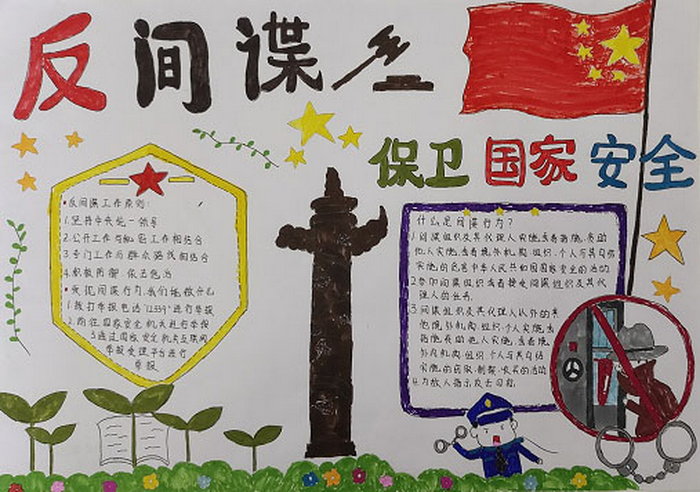 反间谍
保卫国家安全
反间谍工作原则:
1.坚持中央统一领导
2.公开工作与秘密工作相结合
3.专门工作与群众路线相结合
4.积极防御·依法惩治
发现间谍行为我们能做什么
1.拨打举报电话"12339"进行举报
2.前往国家安全机关进行举报
3.通过国家安全机关互联网
举报受理平台进行
举报
什么是间谍行为?
1.间谍组织及其代理人实施,或者指施,资助
他人实施,或者境外机构、组织、个人与其勾结
实施的危害中华人民共和国国家安全的活动
2.参加间谍组织或者接受间谍组织及其代
理人的任务.
3.间谍组织及其代理人以外的其
他境外机构、组织、个人实施,或
指施,资助他人实施,或者境
外内机构、组织、个人与其勾结
实施的窃取、刺探、收买的活动
4.为敌人指示攻击目标